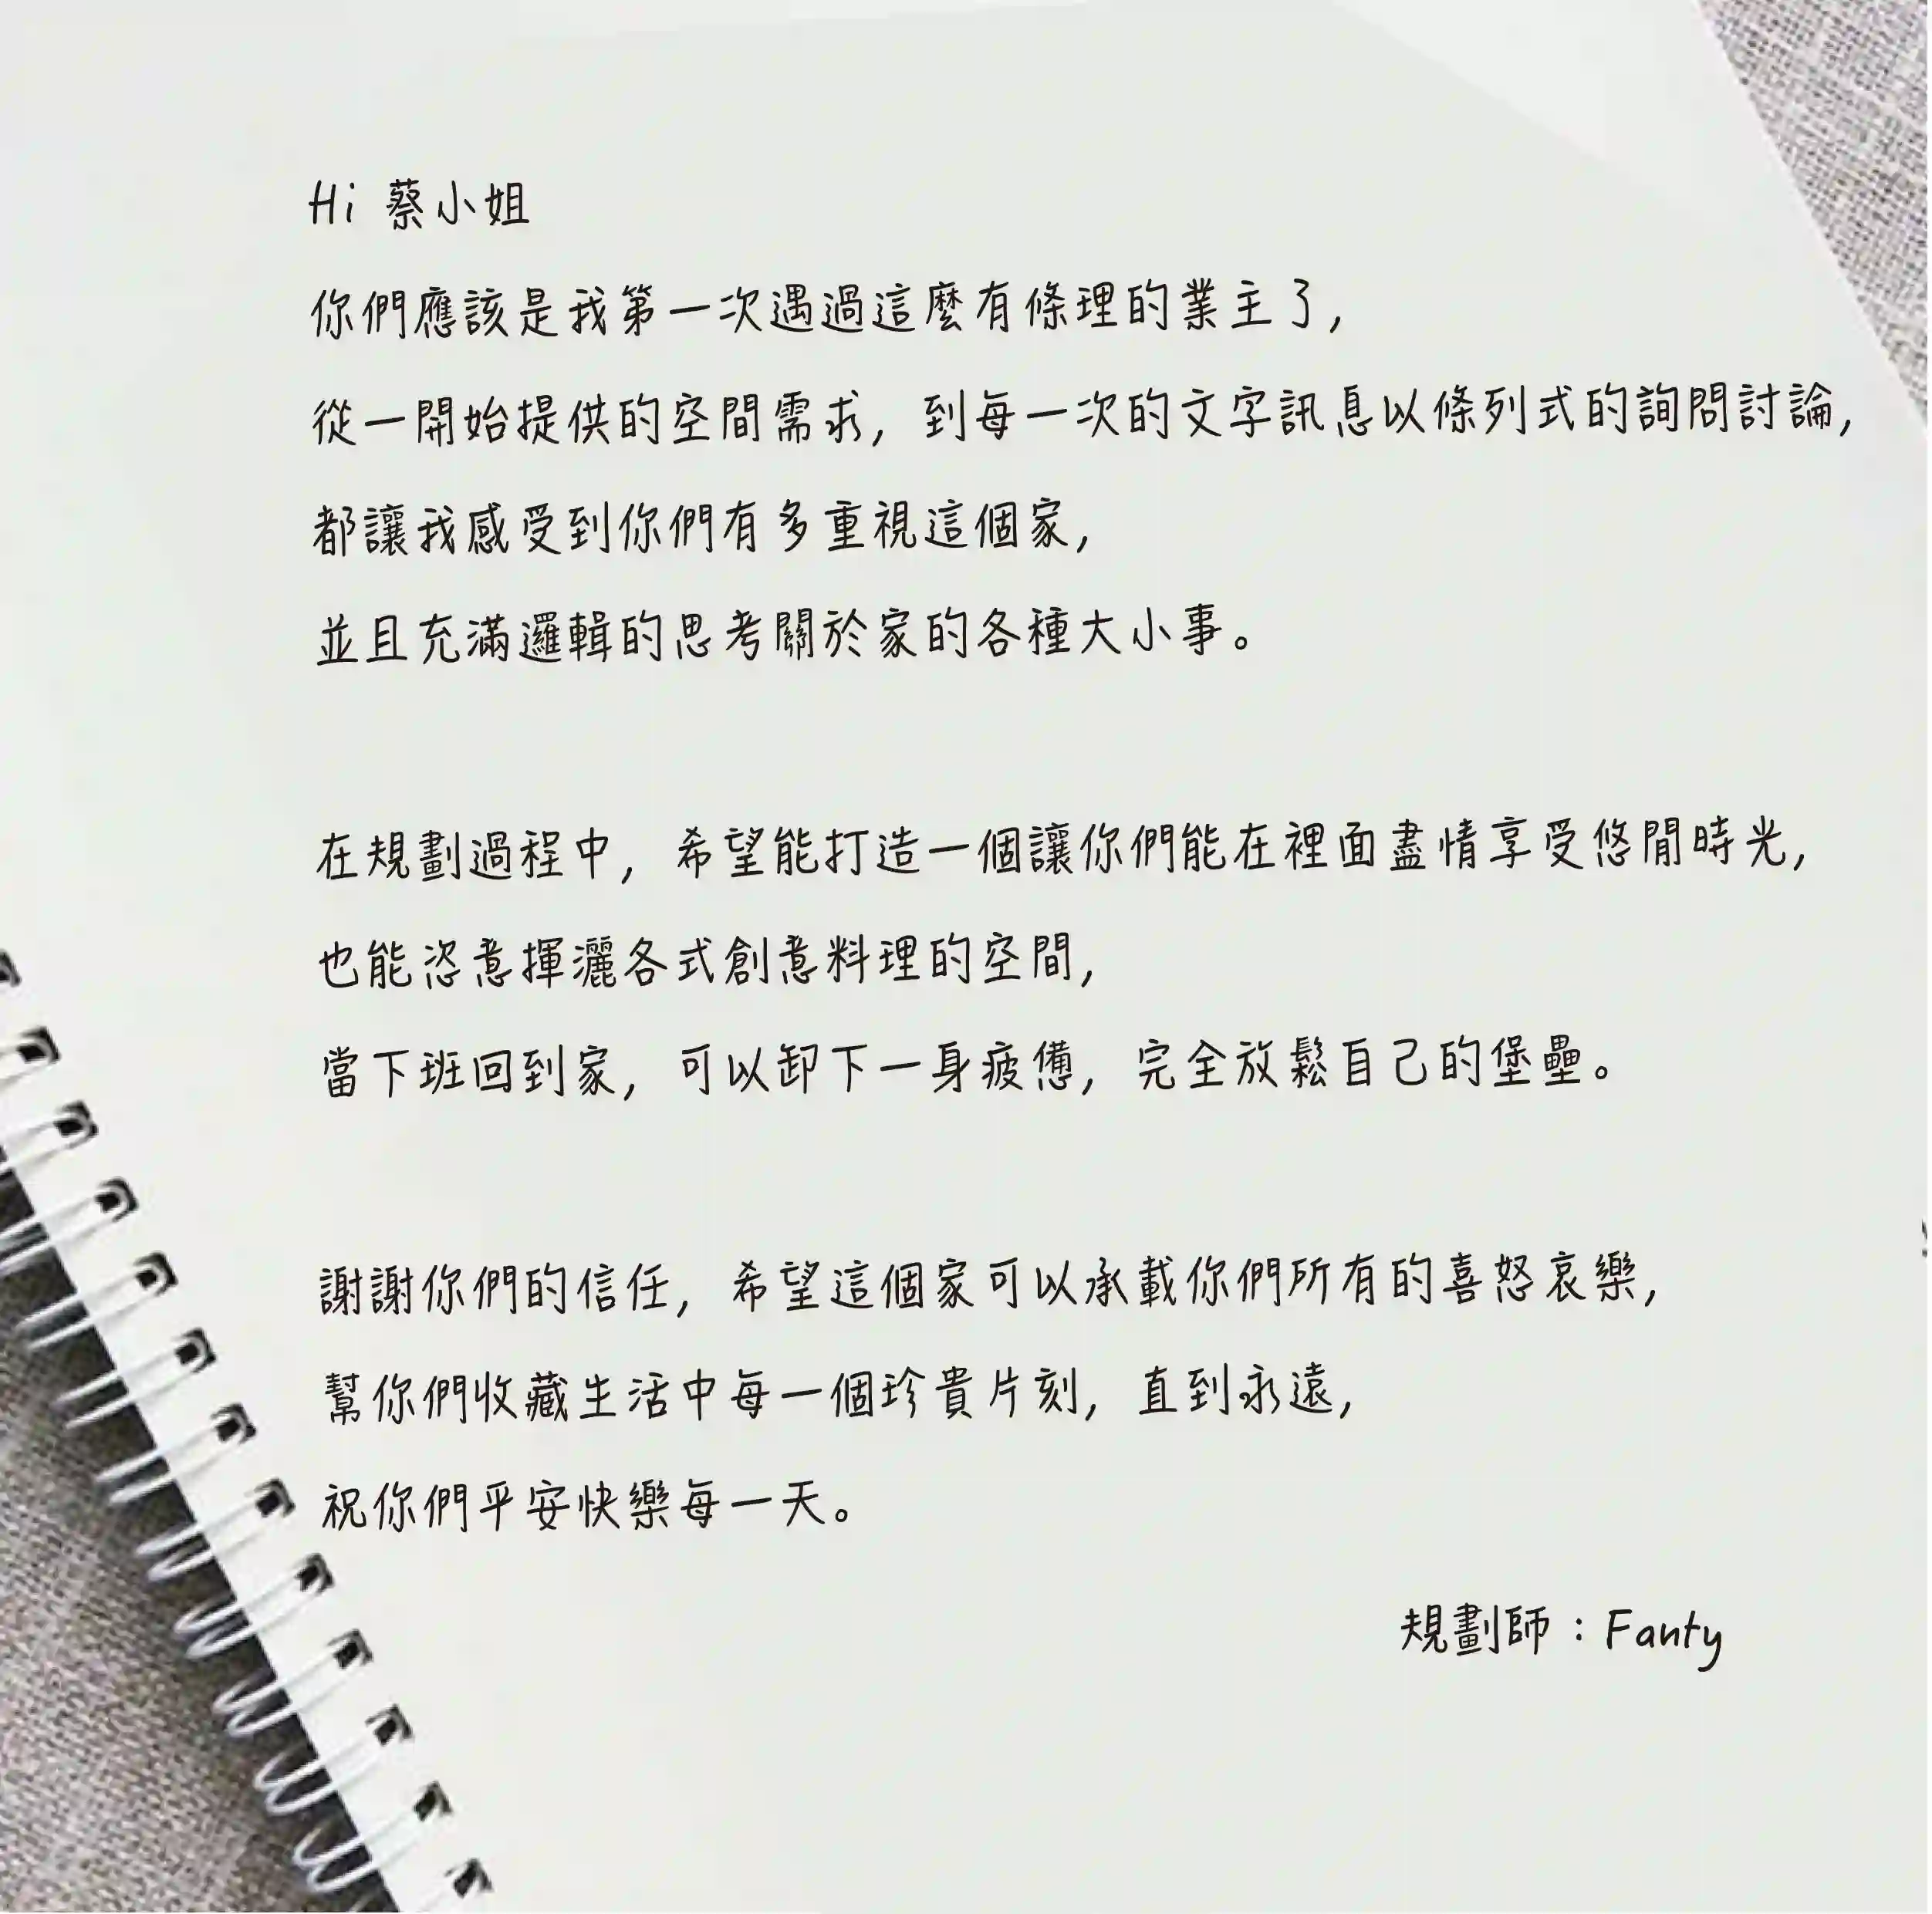 Hi 蔡小姐
你們應該是我第一次遇過這麼有條理的業主了,
從一開始提供的空間需求, 到每一次的文字訊息以條列式的詢問討論,
都讓我感受到你們有多重視這個家,
並且充滿邏輯的思考關於家的各種大小事。
在規劃過程中, 希望能打造一個讓你們能在裡面盡情享受悠閒時光,
也能恣意揮灑各式創意料理的空間,
當下班回到家, 可以卸下一身疲憊, 完全放鬆自己的堡壘。
謝謝你們的信任, 希望這個家可以承載你們所有的喜怒哀樂,
幫你們收藏生活中每一個珍貴片刻, 直到永遠,
祝你們平安快樂每一天。
規劃師：Fanty